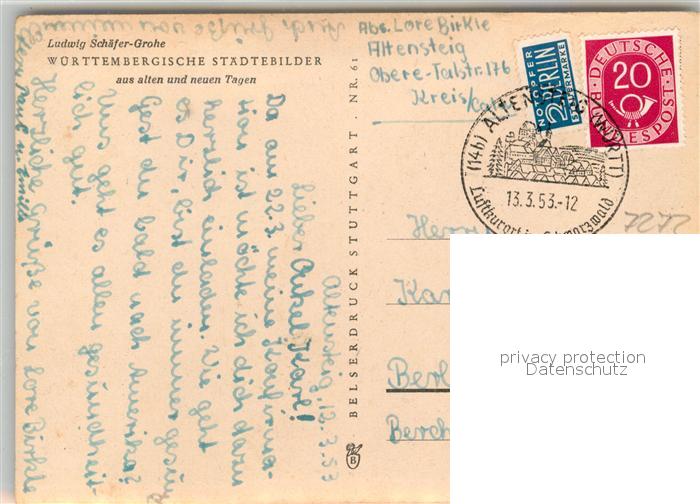 Ludwig Schäfer-Grohe
WÜRTTEMBERGISCHE STÄDTEBILDER
aus alten und neuen Tagen
Altensteig, 12.3.53
Lieber Onkel Karl!
Da am 22.3 meine Konfirma-
tion ist möchte ich dich dazu
herzlich einladen. Wie geht
es Dir, bist du immer gesund
Gest du bald nach Amerika?
Uns geht es allen gesundheit-
lich gut.
Herzliche Grüße von Lore Birkle
Auch Grüße von
BELSERDRUCK STUTTGART · NR. 61
B
Abs. Lore Birkle
Altensteig
Obere-Talstr. 176
Kreis/Calw
NOTOPFER
2 BERLIN
STEUERMARKE
DEUTSCHE
20
BUNDESPOST
(14b) ALTENSTEIG (WÜRTT)
13.3.53.-12
Luftkurort im Schwarzwald
Herr
Kar
Berl
Berch
privacy protection
Datenschutz